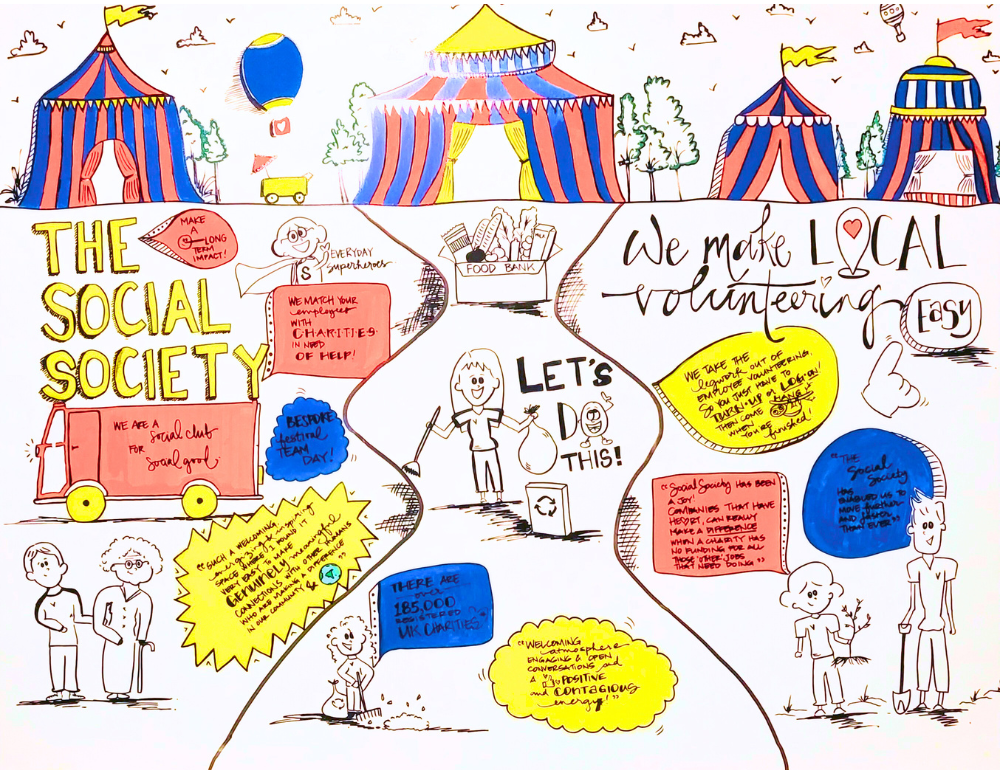 THE
SOCIAL
SOCIETY
MAKE
A
LONG
TERM
IMPACT!
S
EVERYDAY
superheroes
WE MATCH YOUR
employees
WITH
CHARITIES
IN NEED
OF HELP!
WE ARE A
social club
FOR
social good
BESPOKE
festival
TEAM
DAY!
"SUCH A WELCOMING,
SPACE WHERE I FOUND IT
VERY EASY TO MAKE
GENUINELY meaningful
CONNECTIONS WITH OTHER HUMANS
WHO ARE MAKING A DIFFERENCE
IN OUR COMMUNITY &"
FOOD BANK
LET'S
DO
THIS!
THERE ARE
over
185,000
REGISTERED
UK CHARITIES
"WELCOMING
atmosphere
ENGAGING & OPEN
CONVERSATIONS and
A POSITIVE
and CONTAGIOUS
energy!"
We make LOCAL
volunteering
EASY
WE TAKE THE
legwork OUT OF
EMPLOYEE VOLUNTEERING.
SO YOU JUST HAVE TO
TURN-UP or LOG-ON!
THEN COME HANG
WHEN
YOU'RE finished!
"THE
Social
Society
HAS
ENABLED US TO
MOVE further
AND faster
THAN EVER"
"Social Society HAS BEEN
A JOY!
COMPANIES THAT HAVE
HEART, CAN REALLY
MAKE A DIFFERENCE
WHEN A CHARITY HAS
NO FUNDING FOR ALL
THOSE 'OTHER' JOBS
THAT NEED DOING"